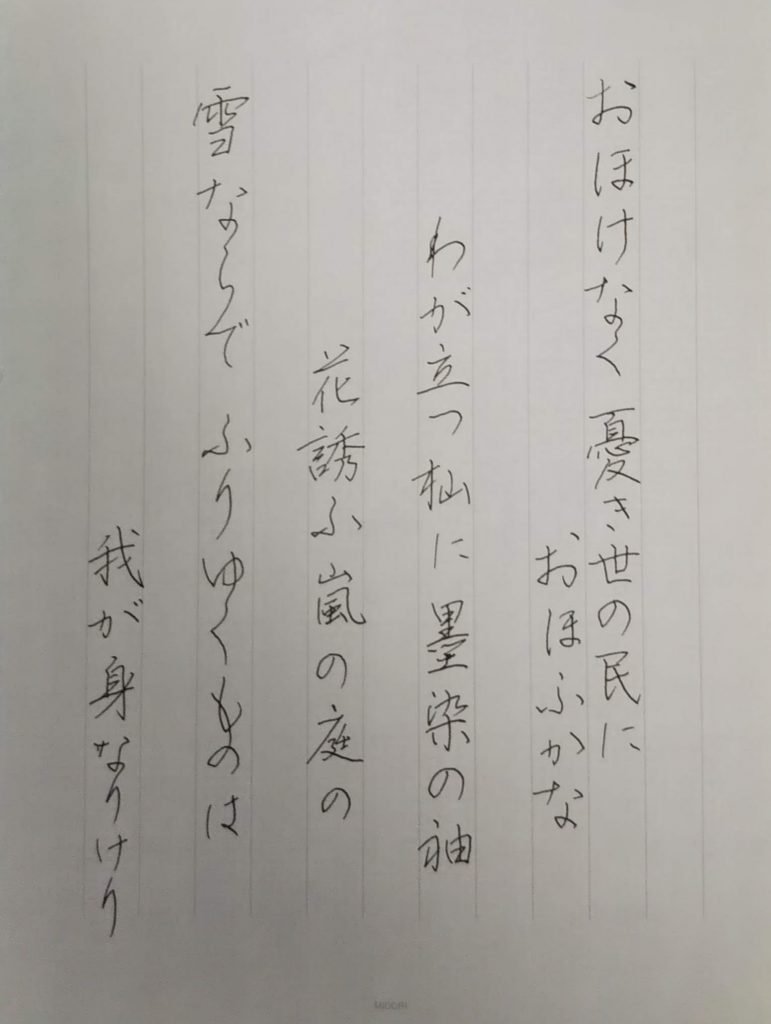 おほけなく憂き世の民に
おほふかな
わが立つ杣に墨染の袖
花誘ふ嵐の庭の
雪ならでふりゆくものは
我が身なりけり
MIDORI